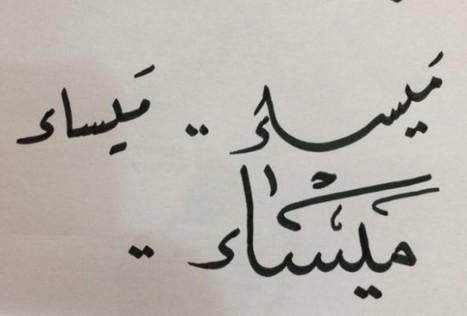 مَيساء .. مَيساء
مَيسَاء ..